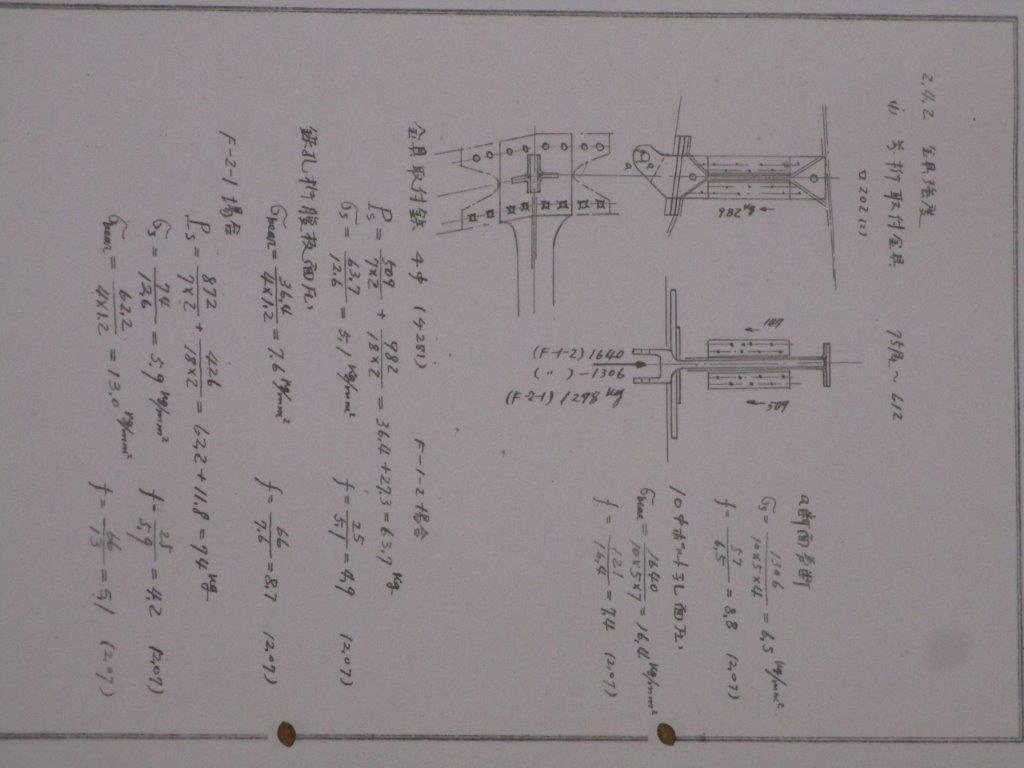 2.4.2 金具強度
(1) 前桁取付金具 75/2 ~ 612
□202(2)
982 kg
149
509
(F-1-2) 1640
( 〃 ) -1306
(F-2-1) 1298 kg
a断面剪断
σs = 1306 / 10×5×4 = 6.5 kg/mm²
f = 57 / 6.5 = 8.8 (2.07)
10φボルト孔面圧
σbear = 16400 / 10×5×7 = 16.4 kg/mm²
f = 121 / 16.4 = 7.4 (2.07)
金具取付鋲 4φ (4281) F-1-2場合
Ps = 509 / 7×2 + 982 / 18×2 = 36.4 + 27.3 = 63.7 kg
σs = 63.7 / 12.6 = 5.1 kg/mm² f = 25 / 5.1 = 4.9 (2.07)
鋲孔桁腹板面圧
σbear = 36.4 / 4×1.2 = 7.6 kg/mm² f = 66 / 7.6 = 8.7 (2.07)
F-2-1場合
Ps = 872 / 7×2 + 426 / 18×2 = 62.2 + 11.8 = 74 kg
σs = 74 / 12.6 = 5.9 kg/mm² f = 25 / 5.9 = 4.2 (2.07)
σbear = 62.2 / 4×1.2 = 13.0 kg/mm² f = 66 / 13 = 5.1 (2.07)